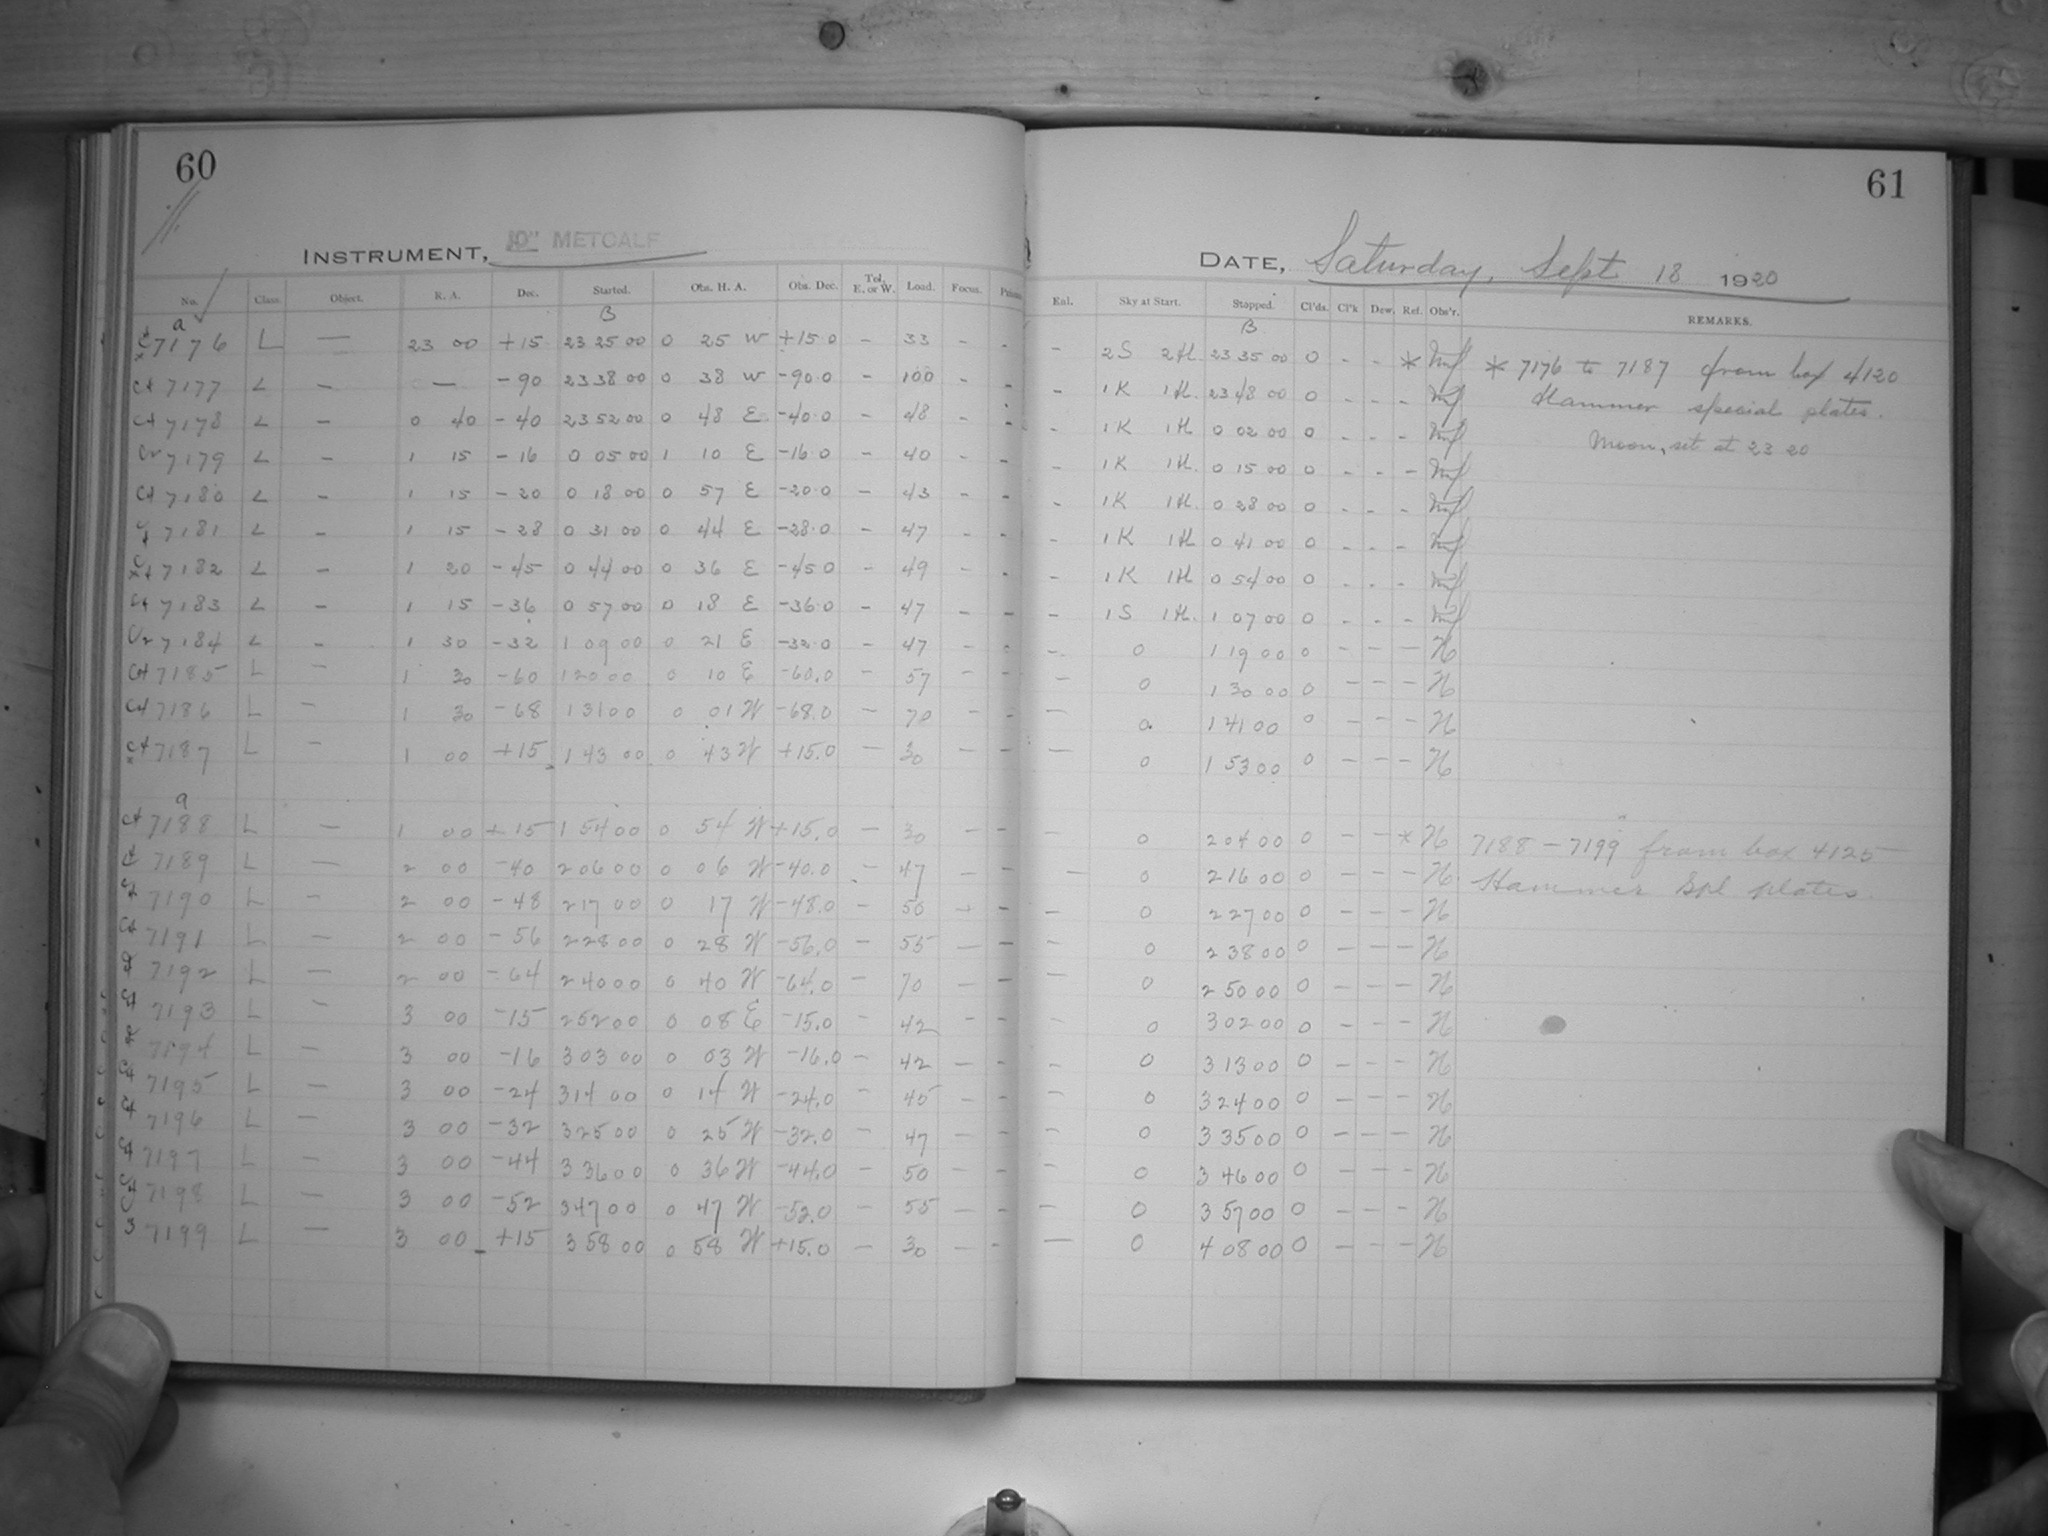 60
INSTRUMENT, 10" METCALF
No. Class. Object. R. A. Dec. Started. Obs. H. A. Obs. Dec. Tel. E. or W. Load. Focus.
a B
7176 L — 23 00 +15 23 25 00 0 25 W +15 0 - 33 - -
7177 L - — -90 23 38 00 0 38 W -90.0 - 100 - -
7178 L - 0 40 -40 23 52 00 0 48 E -40.0 - 48 - -
7179 L - 1 15 -16 0 05 00 1 10 E -16 0 - 40 - -
7180 L - 1 15 -20 0 18 00 0 57 E -20.0 - 43 - -
7181 L - 1 15 -28 0 31 00 0 44 E -28.0 - 47 - -
7182 L - 1 20 -45 0 44 00 0 36 E -45 0 - 49 - -
7183 L - 1 15 -36 0 57 00 0 18 E -36.0 - 47 - -
7184 L - 1 30 -32 1 09 00 0 21 E -32.0 - 47 - -
7185 L - 1 30 -60 1 20 00 0 10 E -60.0 - 57 - -
7186 L - 1 30 -68 1 31 00 0 01 W -68.0 - 70 - -
7187 L - 1 00 +15 1 43 00 0 43 W +15.0 - 30 - -
a
7188 L - 1 00 +15 1 54 00 0 54 W +15.0 - 30 - -
7189 L - 2 00 -40 2 06 00 0 06 W -40.0 - 47 - -
7190 L - 2 00 -48 2 17 00 0 17 W -48.0 - 50 - -
7191 L - 2 00 -56 2 28 00 0 28 W -56.0 - 55 - -
7192 L - 2 00 -64 2 40 00 0 40 W -64.0 - 70 - -
7193 L - 3 00 -15 2 52 00 0 08 E -15.0 - 42 - -
7194 L - 3 00 -16 3 03 00 0 03 W -16.0 - 42 - -
7195 L - 3 00 -24 3 14 00 0 14 W -24.0 - 45 - -
7196 L - 3 00 -32 3 25 00 0 25 W -32.0 - 47 - -
7197 L - 3 00 -44 3 36 00 0 36 W -44.0 - 50 - -
7198 L - 3 00 -52 3 47 00 0 47 W -52.0 - 55 - -
7199 L - 3 00 +15 3 58 00 0 58 W +15.0 - 30 - -
61
DATE, Saturday, Sept 18 1920
Enl. Sky at Start. Stopped. Cl'ds. Cl'k Dew. Ref. Obs'r. REMARKS.
B
- 2S 2H. 23 35 00 0 - - * * 7176 to 7187 from box 4120
- 1K 1H. 23 48 00 0 - - - Hammer special plates.
- 1K 1H 0 02 00 0 - - - Moon, set at 23 20
- 1K 1H. 0 15 00 0 - - -
- 1K 1H. 0 28 00 0 - - -
- 1K 1H. 0 41 00 0 - - -
- 1K 1H 0 54 00 0 - - -
- 1S 1H. 1 07 00 0 - - -
- 0 1 19 00 0 - - - H
- 0 1 30 00 0 - - - H
- 0 1 41 00 0 - - - H
- 0 1 53 00 0 - - - H
- 0 2 04 00 0 - - * H 7188 - 7199 from box 4125
- 0 2 16 00 0 - - - H Hammer Spl plates.
- 0 2 27 00 0 - - - H
- 0 2 38 00 0 - - - H
- 0 2 50 00 0 - - - H
- 0 3 02 00 0 - - - H
- 0 3 13 00 0 - - - H
- 0 3 24 00 0 - - - H
- 0 3 35 00 0 - - - H
- 0 3 46 00 0 - - - H
- 0 3 57 00 0 - - - H
- 0 4 08 00 0 - - - H